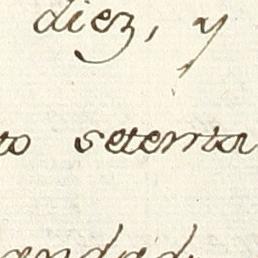 diez, y
to setenta
andad